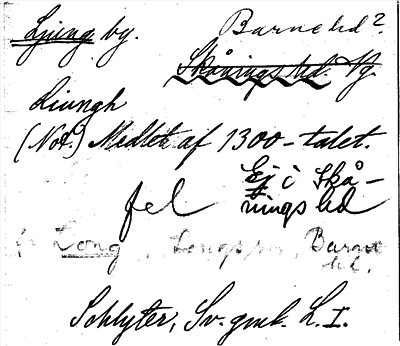 Ljung by. Barne hd?
Skånings hd. Vg.
Liungh
(Not.) Medlet af 1300-talet.
fel Ej i Skå-
nings hd
Long, Longs, Barne
hd.
Schlyter, Sv. gml. L. I.